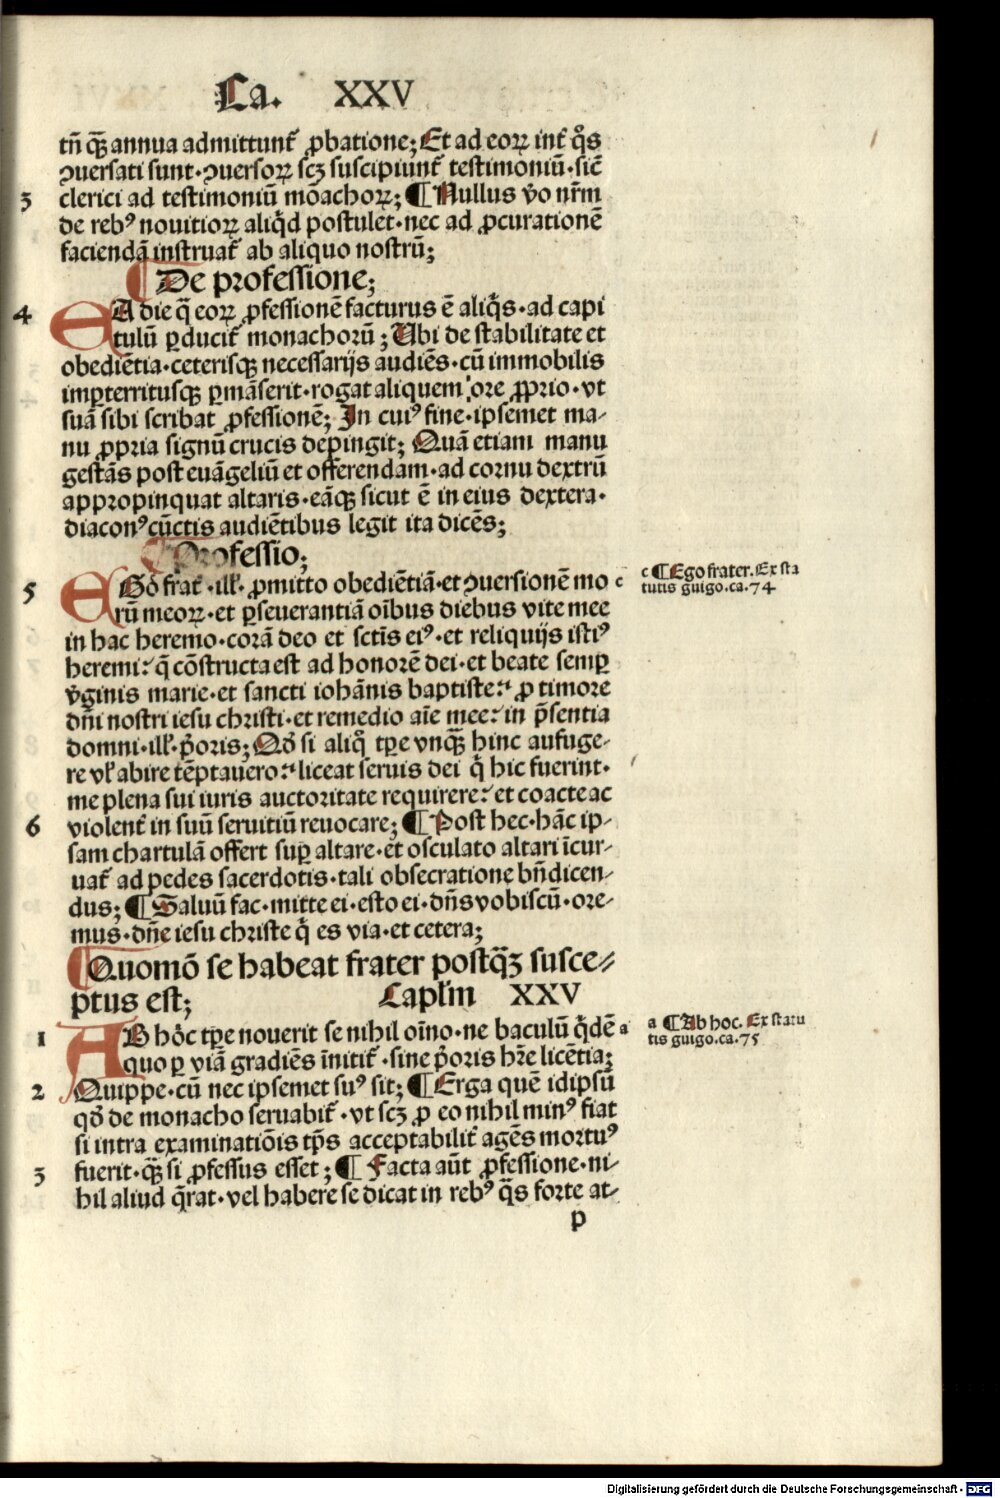 Ca. XXV
tn̄ qꝫ̄ annua admittunt᷑ ꝓbatione; Et ad eoꝝ int᷑ q̊s
ꝯuersati sunt· ꝯuersoꝝ scꝫ suscipiunt᷑ testimoniū· sic̄
3 clerici ad testimoniū mōachoꝝ; ¶ Nullus v̊o nr̄m
de rebꝰ nouitioꝝ aliq̇d postulet· nec ad ꝓcurationē
faciendā instruat᷑ ab aliquo nostrū;
¶ De professione;
4 EA die q̄ eoꝝ ꝓfessionē facturus ē aliq̇s· ad capi
tulū ꝑducit᷑ monachorū; Ubi de stabilitate et
obediētia· ceterisqꝫ necessarijs audiēs· cū immobilis
imꝑterritusqꝫ ꝑmāserit· rogat aliquem ore ꝓprio· vt
suā sibi scribat ꝓfessionē; In cuiꝰ fine· ipsemet ma⸗
nu ꝓpria signū crucis depingit; Quā etiam manu
gestās post euāgeliū et offerendam· ad cornu dextrū
appropinquat altaris· eāqꝫ sicut ē in eius dextera·
diaconꝰ cūctis audiētibus legit ita dicēs;
¶ Professio;
5 EGo᷑ frat᷑ ·ill᷑· ꝓmitto obediētiā· et ꝯuersionē mo c
rū meoꝝ· et ꝑseuerantiā oībus diebus vite mee
in hac heremo· corā deo et sctīs eiꝰ· et reliquijs istiꝰ
heremi: q̄ cōstructa est ad honorē dei· et beate semꝑ
v̊ginis marie· et sancti iohānis baptiste: ꝓ timore
dn̄i nostri iesu christi· et remedio aīe mee: in p̄sentia
domni· ill᷑· p̊oris; Qo᷑ si aliq̊ tꝑe vnqꝫ̄ hinc aufuge⸗
re vl᷑ abire tēptauero: liceat seruis dei q̇ hic fuerint·
me plena sui iuris auctoritate requirere: et coacte ac
6 violent᷑ in suū seruitiū reuocare; ¶ Post hec· hāc ip⸗
sam chartulā offert suꝑ altare· et osculato altari īcur⸗
uat᷑ ad pedes sacerdotis· tali obsecratione bn̄dicen⸗
dus; ¶ Saluū fac· mitte ei· esto ei· dn̄s vobiscū· ore⸗
mus· dn̄e iesu christe q̇ es via· et cetera;
¶ Quomō se habeat frater postqꝫ̄ susce⸗
ptus est; Capl᷑m XXV
1 AB ho᷑c tꝑe nouerit se nihil oīno· ne baculū q̇dē a
quo ꝑ viā gradiēs īnitit᷑· sine p̊oris hr̄e licētia;
2 Quippe· cū nec ipsemet suꝰ sit; ¶ Erga quē idipsū
qo᷑ de monacho seruabit᷑· vt scꝫ ꝓ eo nihil minꝰ fiat
si intra examinatiōis tp̄s acceptabilit᷑ agēs mortuꝰ
3 fuerit· qꝫ̄ si ꝓfessus esset; ¶ Facta aūt ꝓfessione· ni⸗
hil aliud q̄rat· vel habere se dicat in rebꝰ q̇s forte at⸗
p
c ¶ Ego frater. Ex sta
tutis guigo. ca. 74
a ¶ Ab hoc. Ex statu
tis guigo. ca. 75
Digitalisierung gefördert durch die Deutsche Forschungsgemeinschaft - DFG